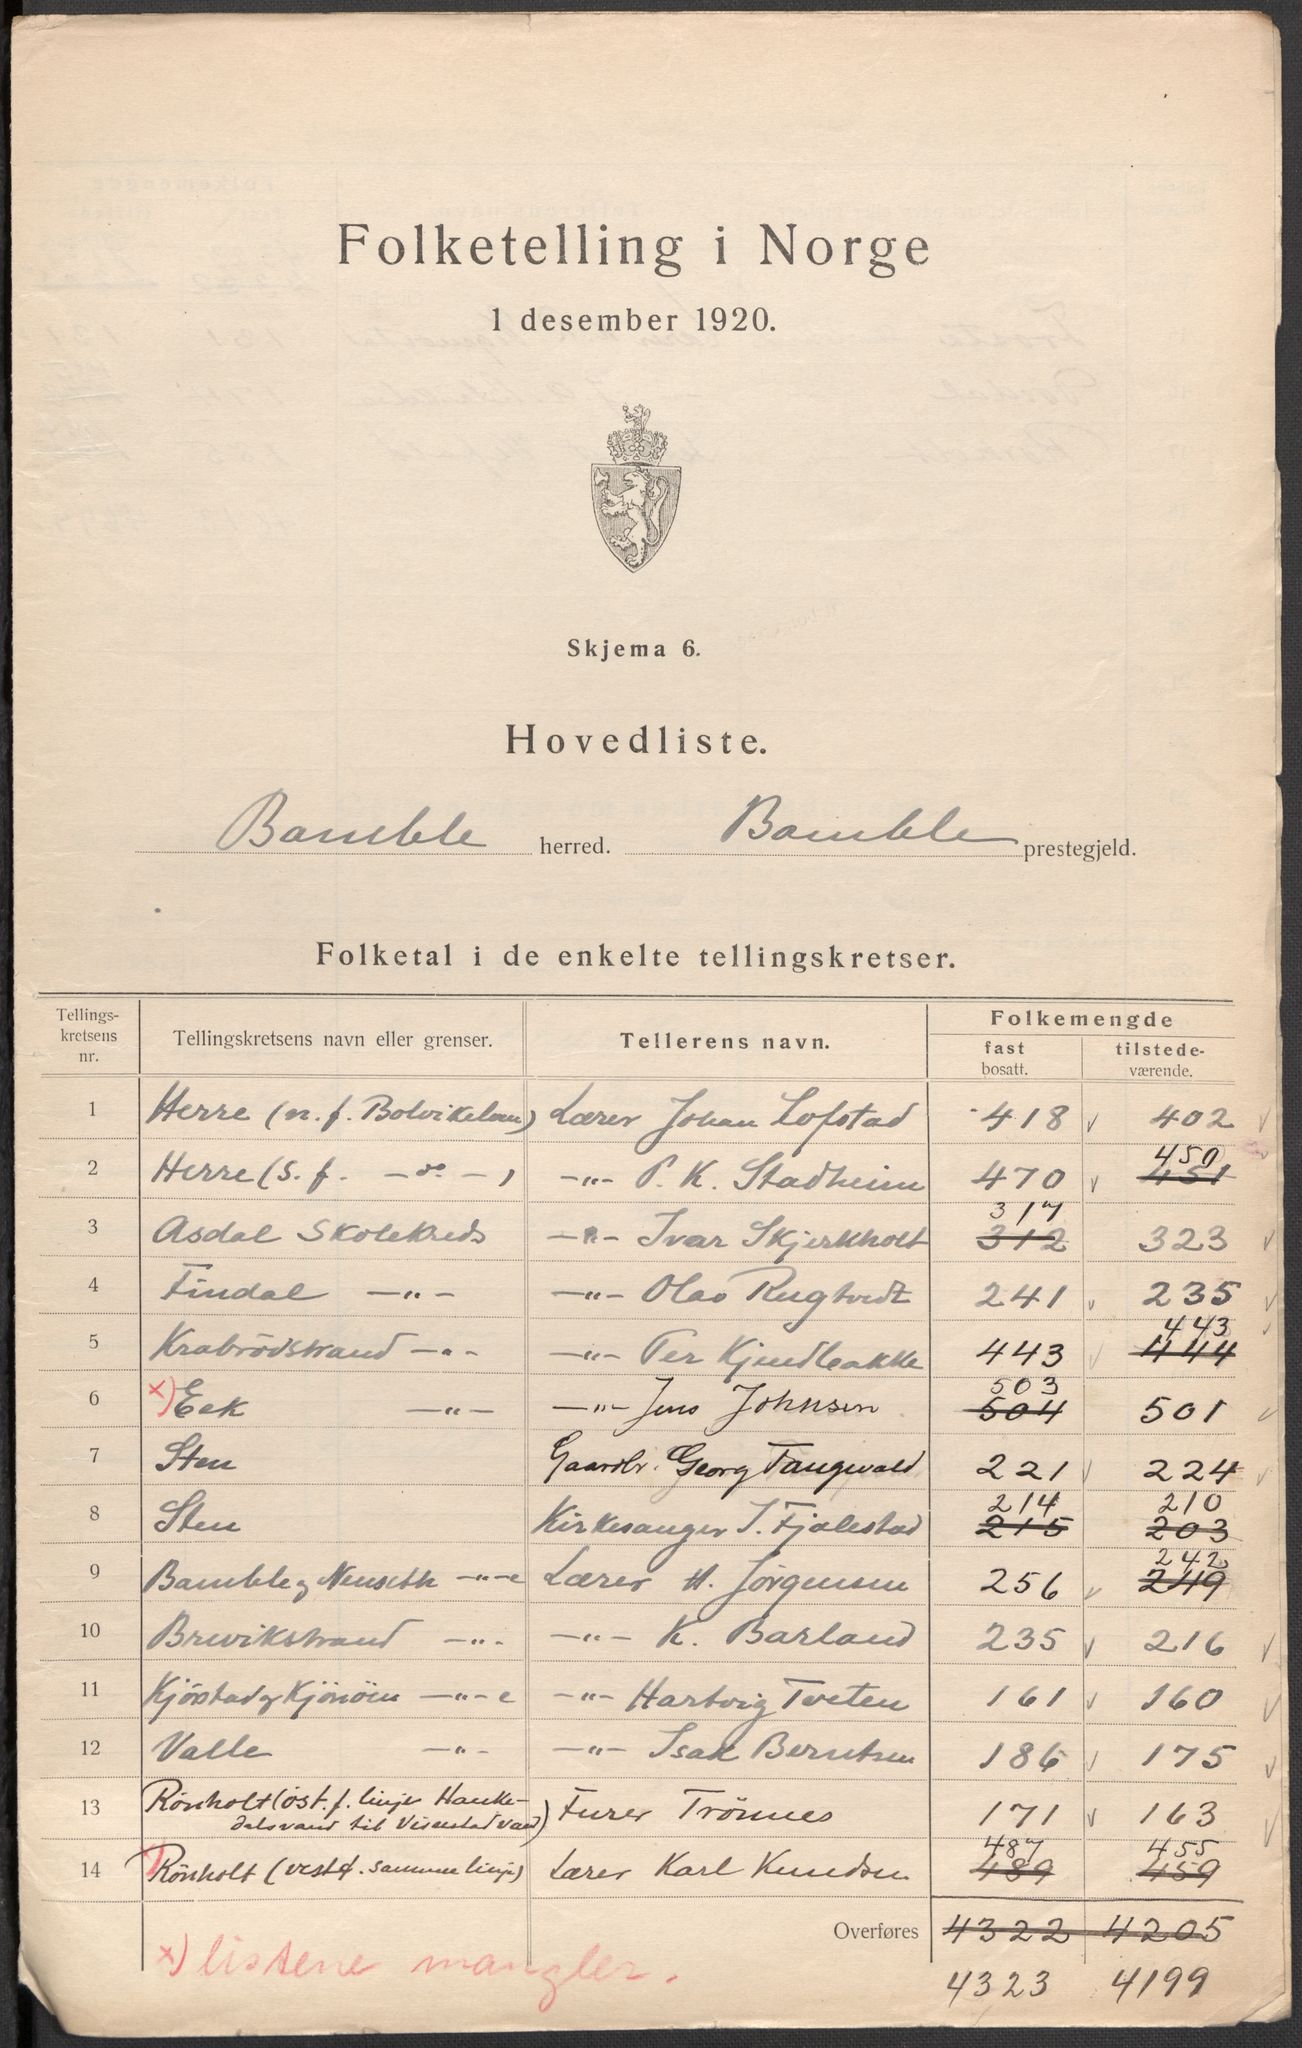 Folketelling i Norge
1 desember 1920.
Skjema 6.
Hovedliste.
Bamble herred. Bamble prestegjeld.
Folketal i de enkelte tellingskretser.
Tellings-kretsens nr. Tellingskretsens navn eller grenser. Tellerens navn. Folkemengde
fast bosatt. tilstede-værende.
1 Herre (n. f. Bolvikelven) Lærer Johan Lofstad 418 v 402 v
2 Herre (s. f. —do—) —"— P. K. Stadheim 470 v 450 451
3 Asdal Skolekreds —"— Ivar Skjerkholt 317 312 323 v
4 Findal —"— —"— Olav Rugtvedt 241 v 235 v
5 Krabrödstrand —"— —"— Per Kjendleakke 443 v 443 444 v
6 x) Eek —"— —"— Jens Johnsen 503 504 501 v
7 Sten Gaardbr. Georg Tangvald 221 v 224 v
8 Sten Kirkesanger J. Fjalestad 214 215 210 203
9 Bamble og Nenseth —"—e Lærer H. Jörgensen 256 v 242 249
10 Brevikstrand —"— —"— K. Barland 235 v 216 v
11 Kjörstad og —"—e —"— Hartvig Tveten 161 v 160 v
12 Valle —"— —"— Isak Berntsen 186 v 175 v
13 Rönholt (öst. f. linje Hauke-
dalsvand til Visenstadvand) Furer Trönnes 171 v 163 v
14 Rönholt (vest f. samme linje) Lærer Karl Knudsen 487 489 455 459
Overføres 4322 4205
4323 4199
x) listene mangler.